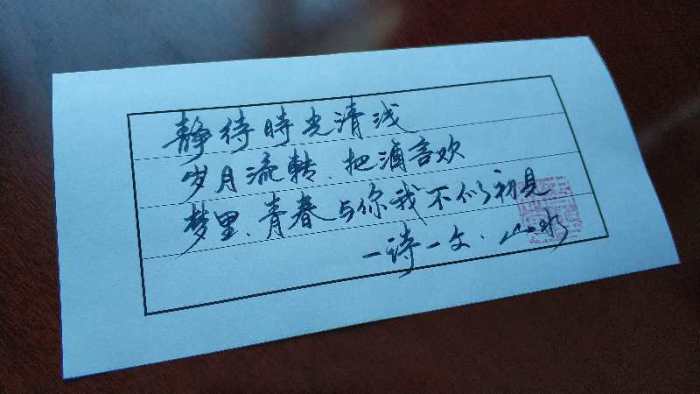 静待時光清浅
岁月流转、把酒言欢
梦里、青春与你我不似初见
一诗一文、山水